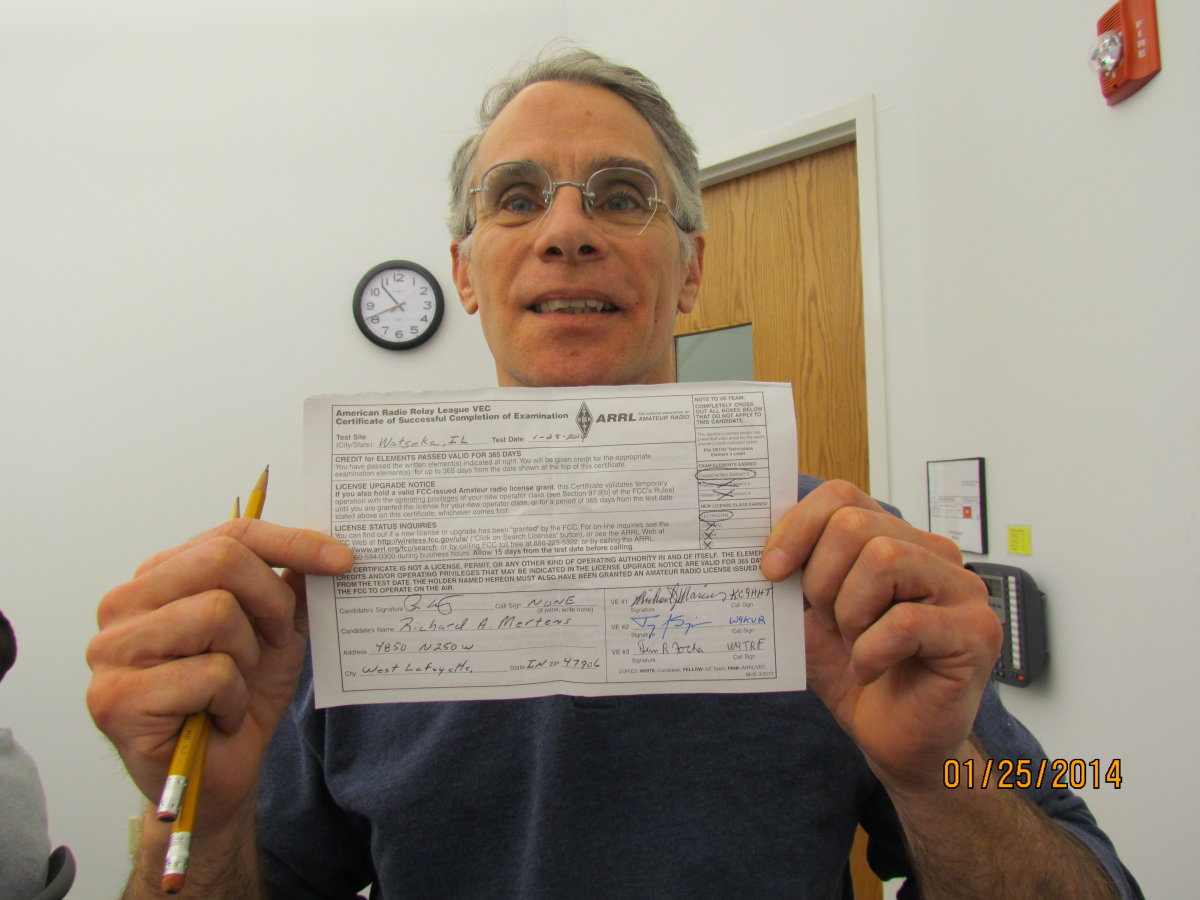 FIRE
American Radio Relay League VEC
Certificate of Successful Completion of Examination
ARRL The national association for AMATEUR RADIO
Test Site
(City/State): Watseka, IL Test Date: 1-25-2014
CREDIT for ELEMENTS PASSED VALID FOR 365 DAYS
You have passed the written element(s) indicated at right. You will be given credit for the appropriate
examination element(s), for up to 365 days from the date shown at the top of this certificate.
LICENSE UPGRADE NOTICE
If you also hold a valid FCC-issued Amateur radio license grant, this Certificate validates temporary
operation with the operating privileges of your new operator class (see Section 97.9[b] of the FCC's Rules)
until you are granted the license for your new operator class, or for a period of 365 days from the test date
stated above on this certificate, whichever comes first.
LICENSE STATUS INQUIRIES
You can find out if a new license or upgrade has been "granted" by the FCC. For on-line inquiries see the
FCC Web at http://wireless.fcc.gov/uls/ ("Click on Search Licenses" button), or see the ARRL Web at
www.arrl.org/fcc/search; or by calling FCC toll free at 888-225-5322; or by calling the ARRL
60-594-0300 during business hours. Allow 15 days from the test date before calling.
CERTIFICATE IS NOT A LICENSE, PERMIT, OR ANY OTHER KIND OF OPERATING AUTHORITY IN AND OF ITSELF. THE ELEMEN
CREDITS AND/OR OPERATING PRIVILEGES THAT MAY BE INDICATED IN THE LICENSE UPGRADE NOTICE ARE VALID FOR 365 DAY
FROM THE TEST DATE. THE HOLDER NAMED HEREON MUST ALSO HAVE BEEN GRANTED AN AMATEUR RADIO LICENSE ISSUED
THE FCC TO OPERATE ON THE AIR.
NOTE TO VE TEAM:
COMPLETELY CROSS
OUT ALL BOXES BELOW
THAT DO NOT APPLY TO
THIS CANDIDATE.
EXAM ELEMENTS EARNED
NEW LICENSE CLASS EARNED
TECHNICIAN
Candidate's Signature Call Sign NONE
(if none, write none)
Candidate's Name Richard A. Mertens
Address 4850 N250W
City West Lafayette, State IN ZIP 47906
VE #1 KC9AHT
Signature Call Sign
VE #2 W9KVR
Signature Call Sign
VE #3 W9TRF
Signature Call Sign
COPIES: WHITE-Candidate, YELLOW-VE Team, PINK-ARRL/VEC
12
1
2
3
4
5
6
7
8
9
10
11
01/25/2014